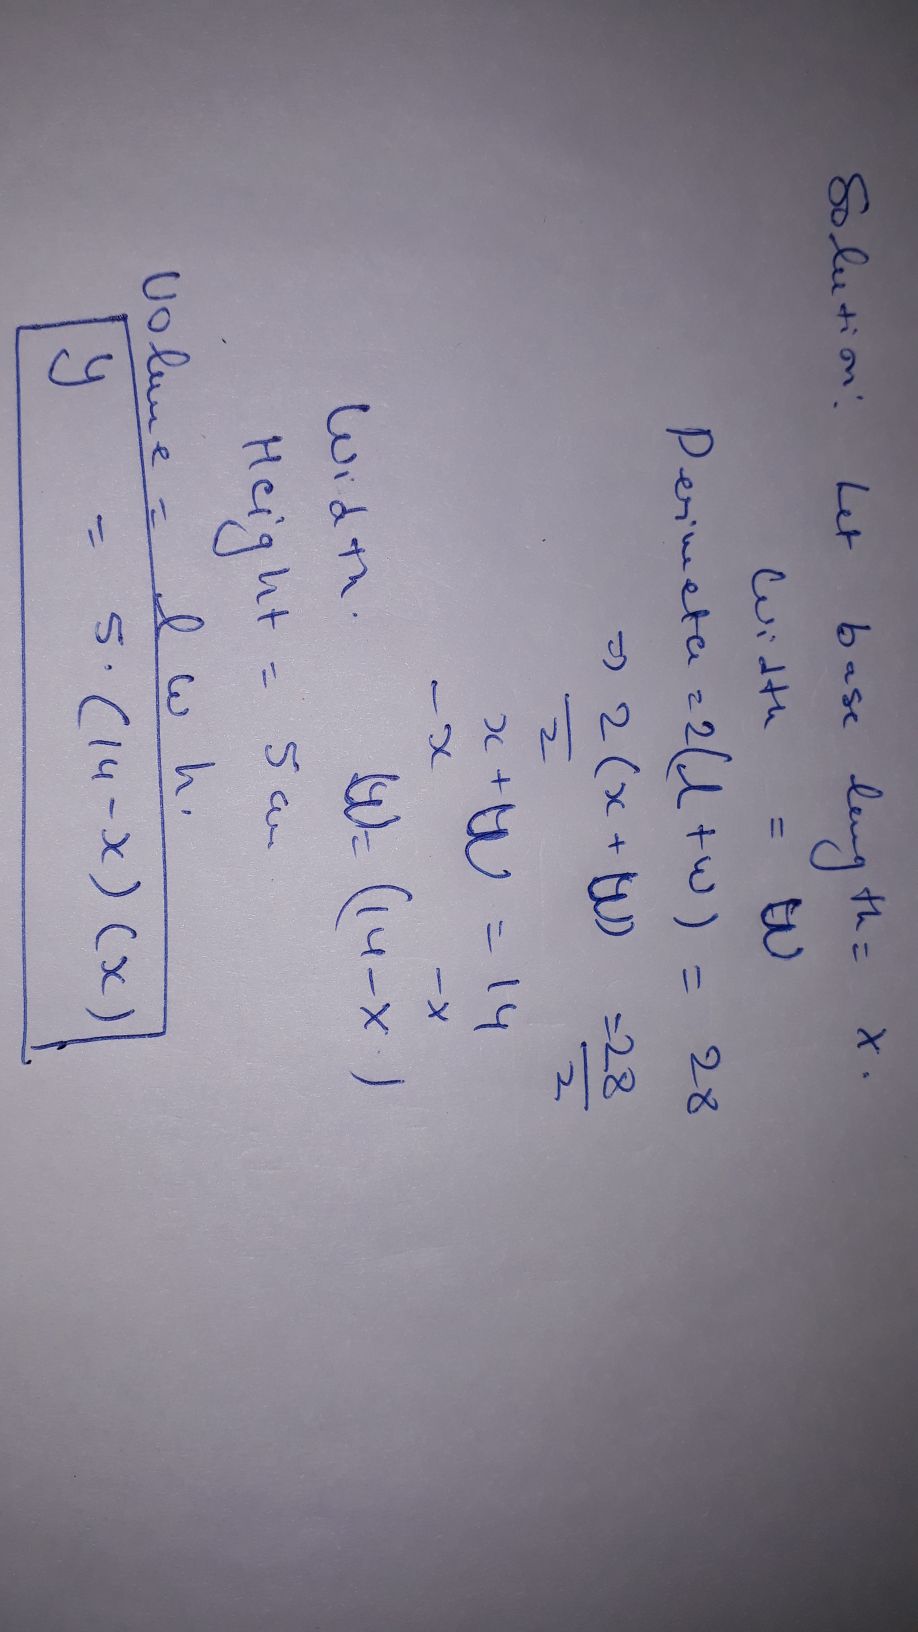 Solution: Let base length = x.
Width = W
Perimeter = 2(l + w) = 28
⇒ 2(x + W) = 28
2 2
x + W = 14
-x -x
Width. W = (14-x)
Height = 5 cm
Volume = l w h.
y = 5·(14-x)(x)